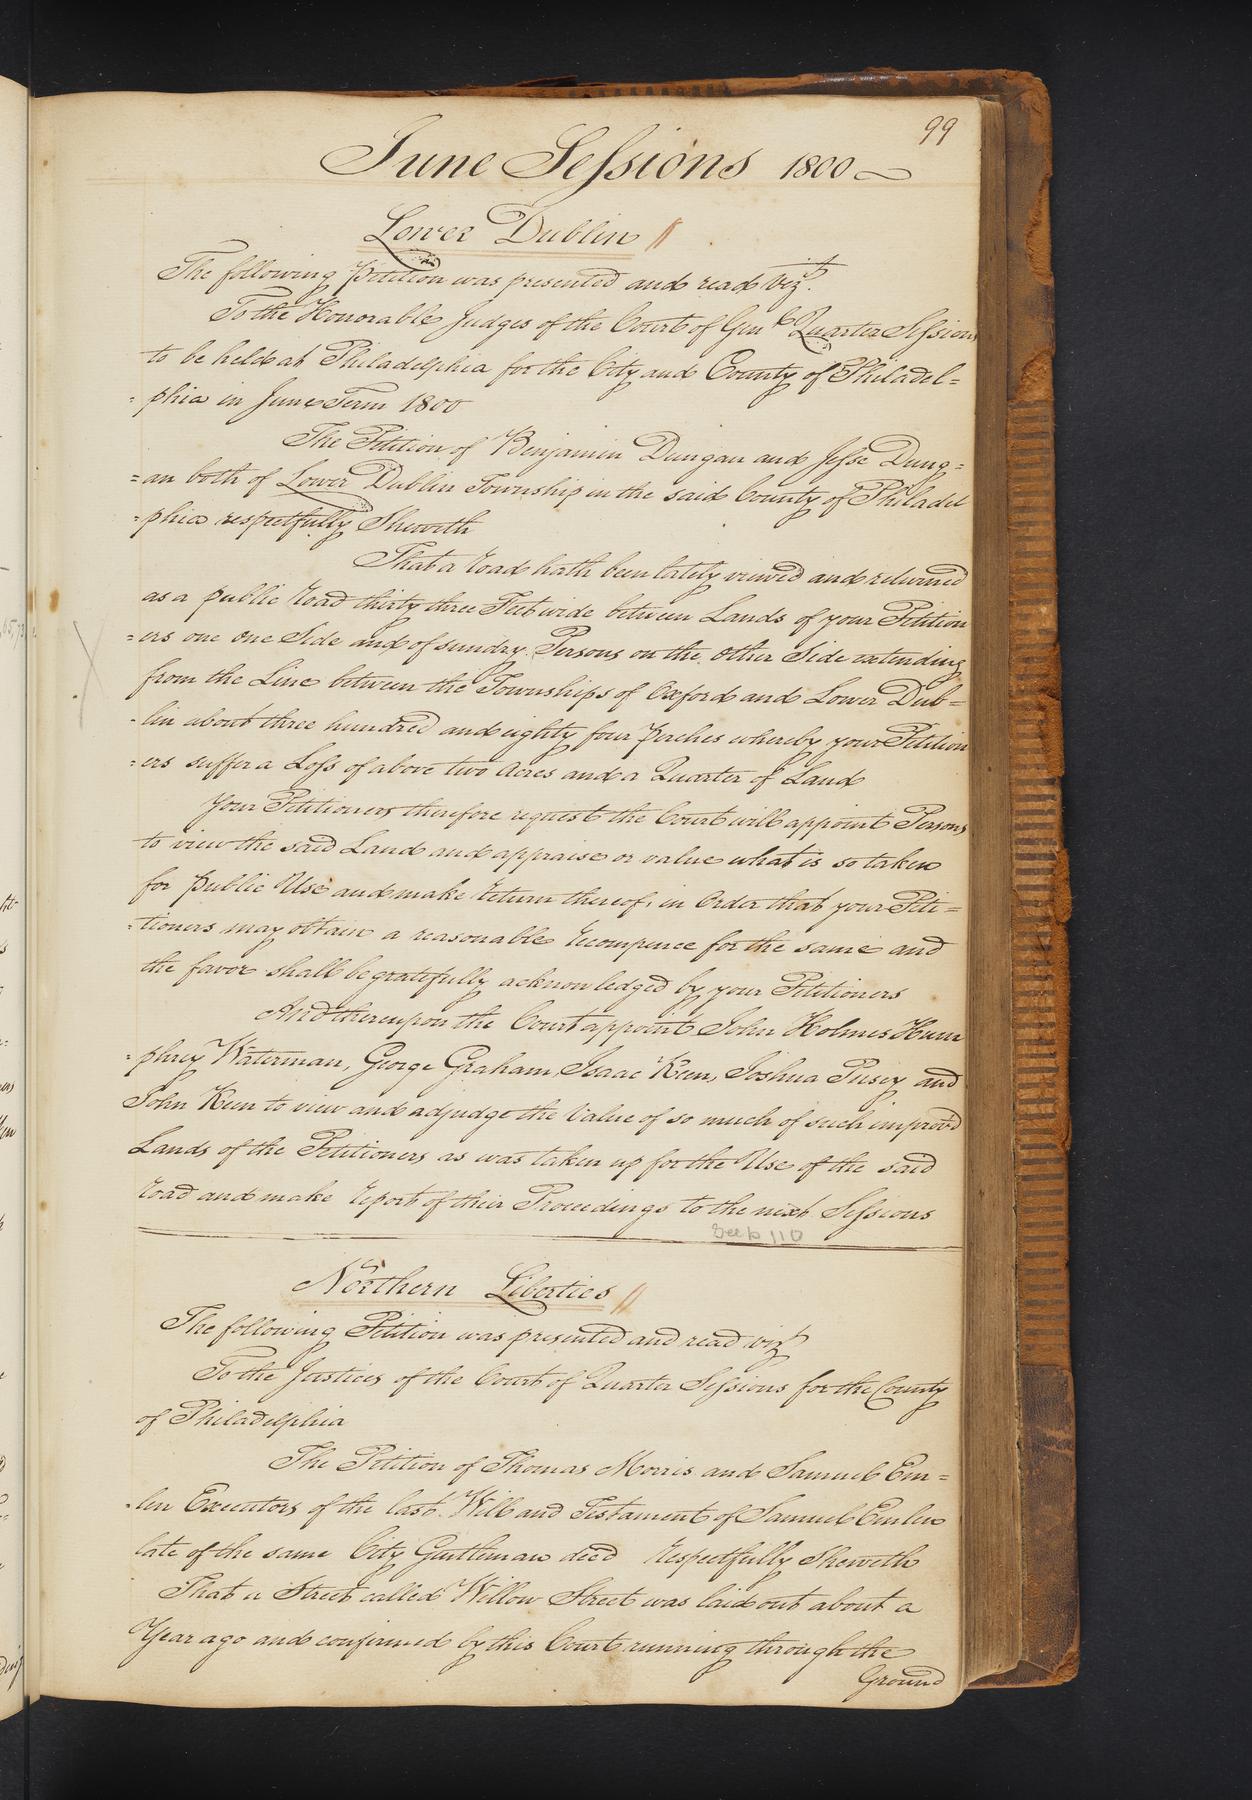 99
June Sessions 1800
Lower Dublin //
The following Petition was presented and read vizt.
To the Honorable Judges of the Court of Genl Quarter Sessions
to be held at Philadelphia for the City and County of Philadel=
=phia in June Term 1800
The Petition of Benjamin Dungan and Jesse Dung=
=an both of Lower Dublin Township in the said County of Philadel
=phia respectfully Sheweth
That a road hath been lately viewed and returned
as a public road thirty three Feet wide between Lands of your Petition
=ers one one Side and of sundry Persons on the other Side extending
from the Line between the Townships of Oxford and Lower Dub=
=lin about three hundred and eighty four Perches whereby your Petition
=ers suffer a Loss of above two Acres and a Quarter of Land
Your Petitioners therefore request the Court will appoint Persons
to view the said Land and appraise or value what is so taken
for public Use and make return thereof, in Order that your Peti=
=tioners may obtain a reasonable recompence for the same and
the favor shall be gratefully acknowledged by your Petitioners
And thereupon the Court appoint John Holmes Hum
=phrey Waterman, George Graham, Isaac Keen, Joshua Pusey and
John Keen to view and adjudge the Value of so much of such improv'd
Lands of the Petitioners as was taken up for the Use of the said
road and make report of their Proceedings to the next Sessions
See p 110
Northern Liberties //
The following Petition was presented and read vizt
To the Justices of the Court of Quarter Sessions for the County
of Philadelphia
The Petition of Thomas Morris and Samuel Em=
=len Executors of the last Will and Testament of Samuel Emlen
late of the same City Gentleman decd respectfully Sheweth
That a Street called Willow Street was laid out about a
Year ago and confirmed by this Court running through the
Ground